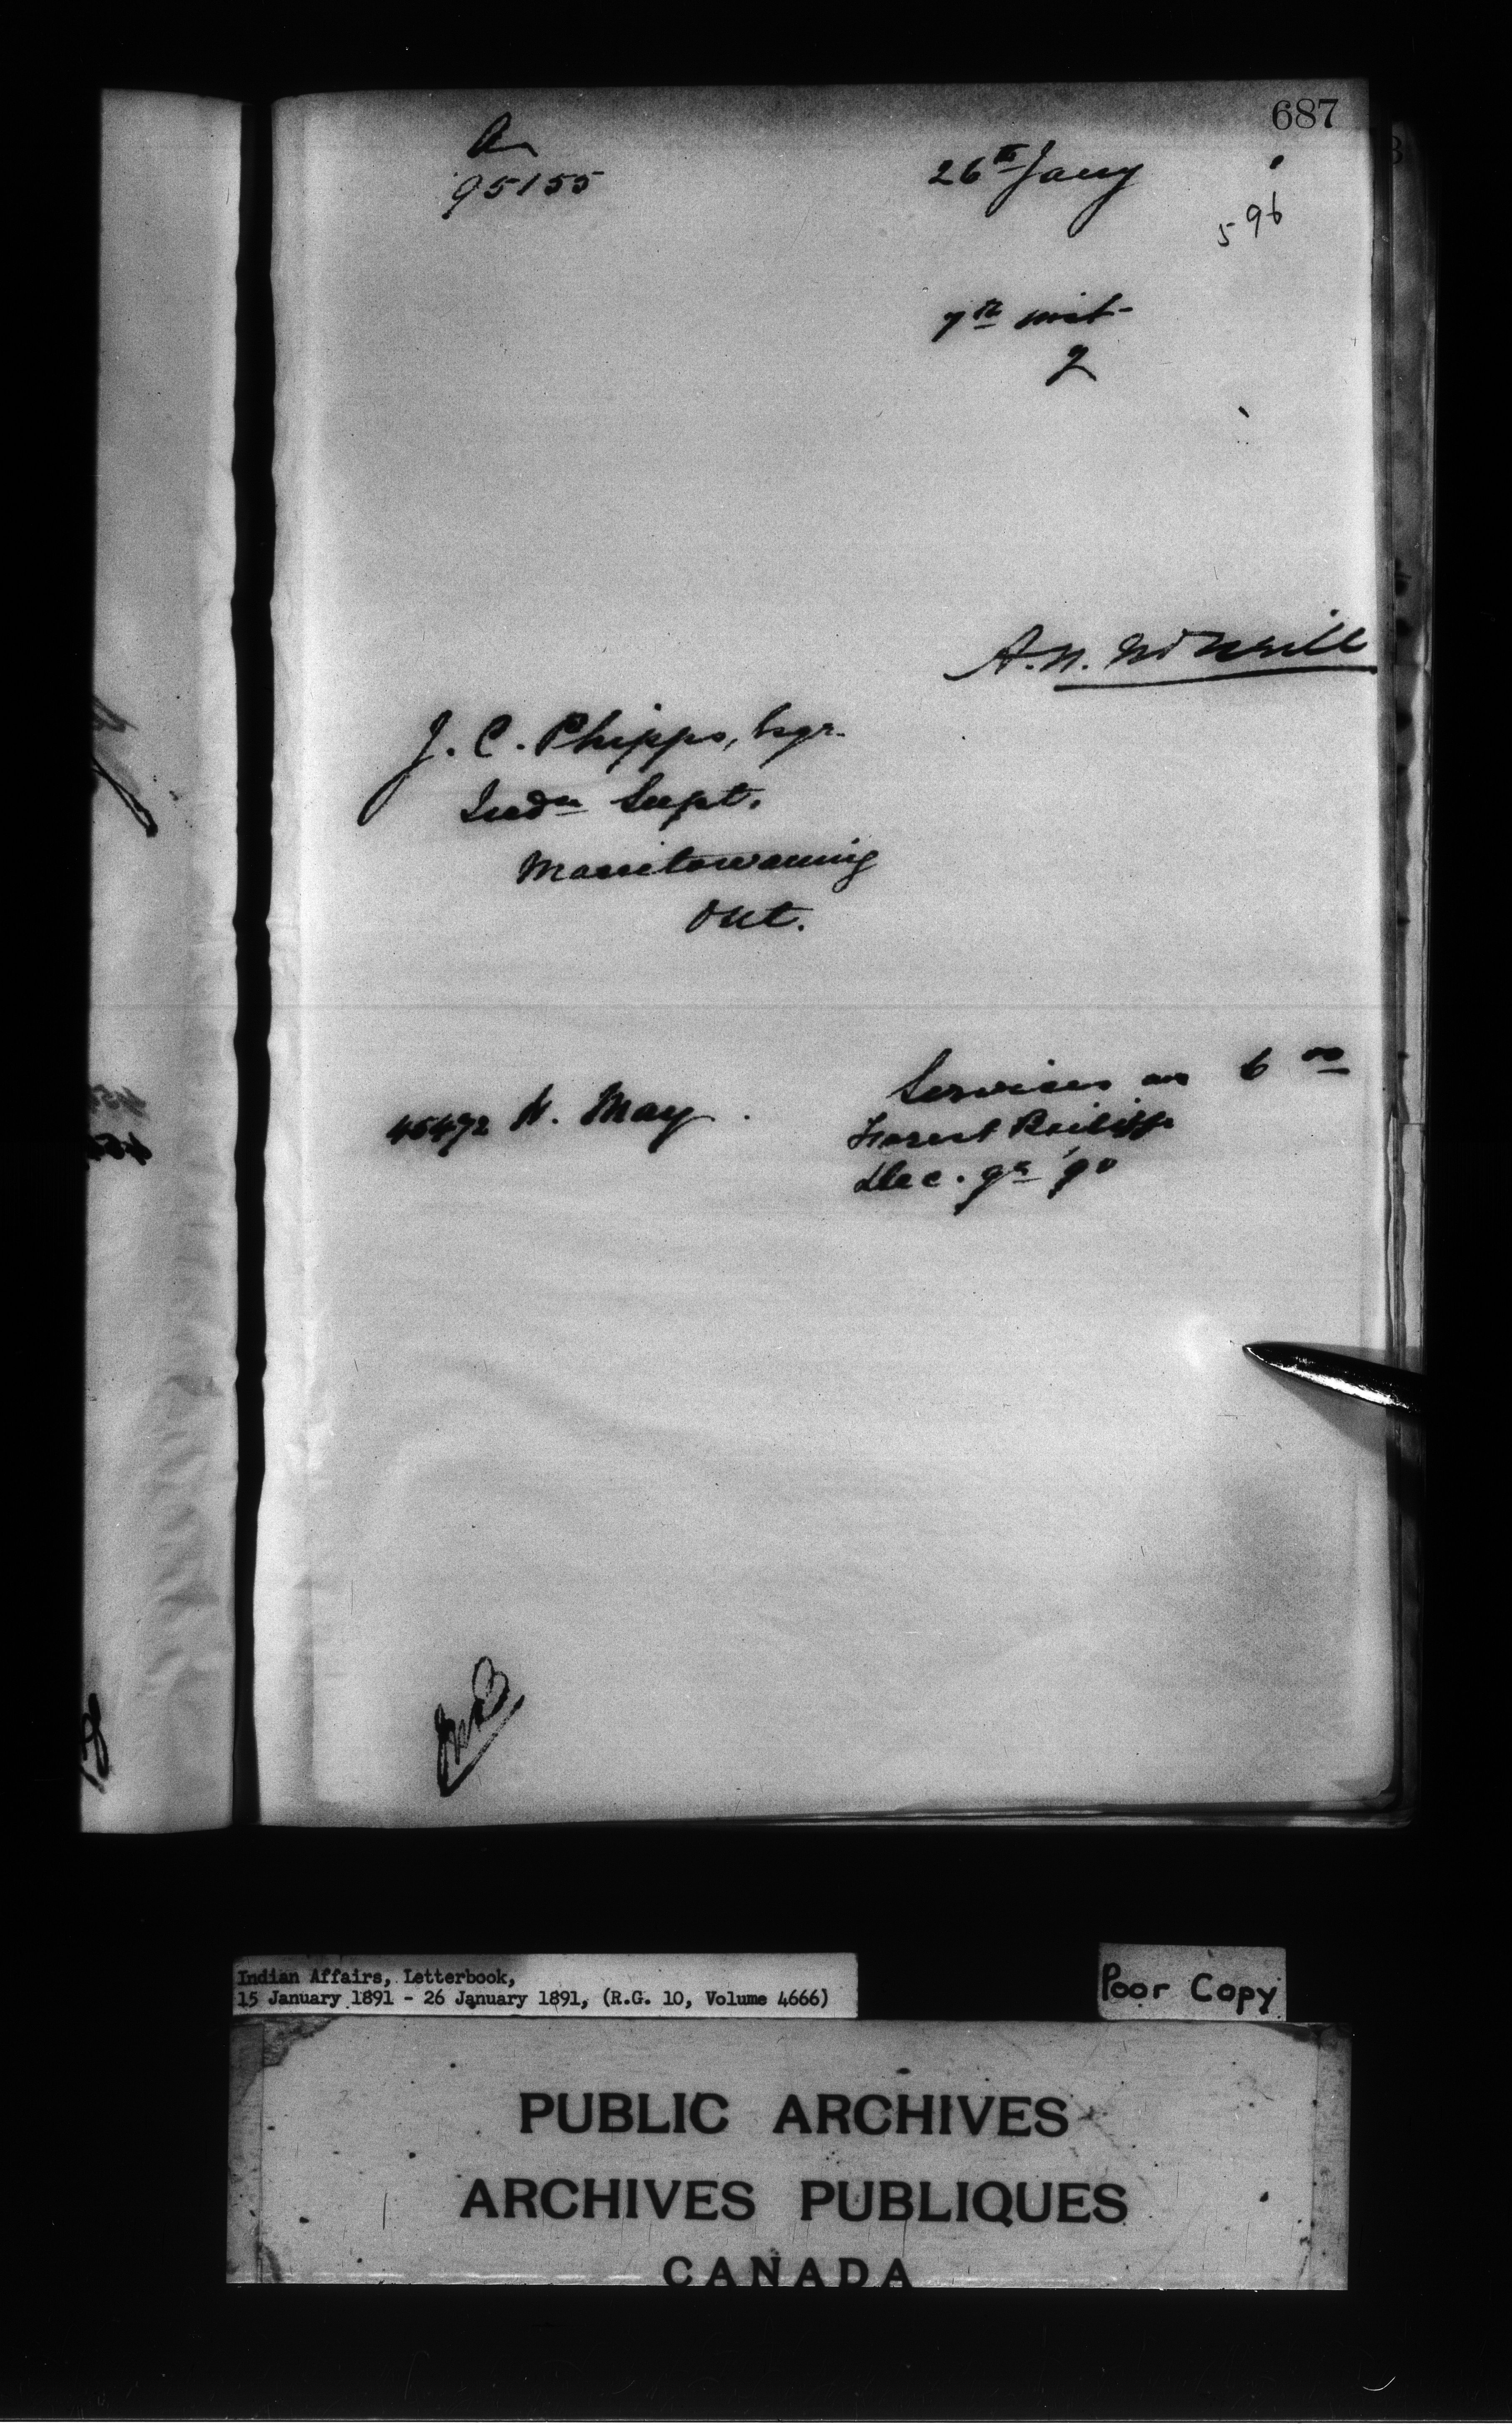 687
A
95155
26th Jany
596
7th inst
2
A.N. McNeill
J. C. Phipps, Esqr.
Indn Supt.
Manitowaning
Ont.
Services as 6 00
45472 N. May.
Forest Bailiff
Dec. qr '90
Indian Affairs, Letterbook,
15 January 1891 - 26 January 1891, (R.G. 10, Volume 4666)
Poor Copy
PUBLIC ARCHIVES
ARCHIVES PUBLIQUES
CANADA